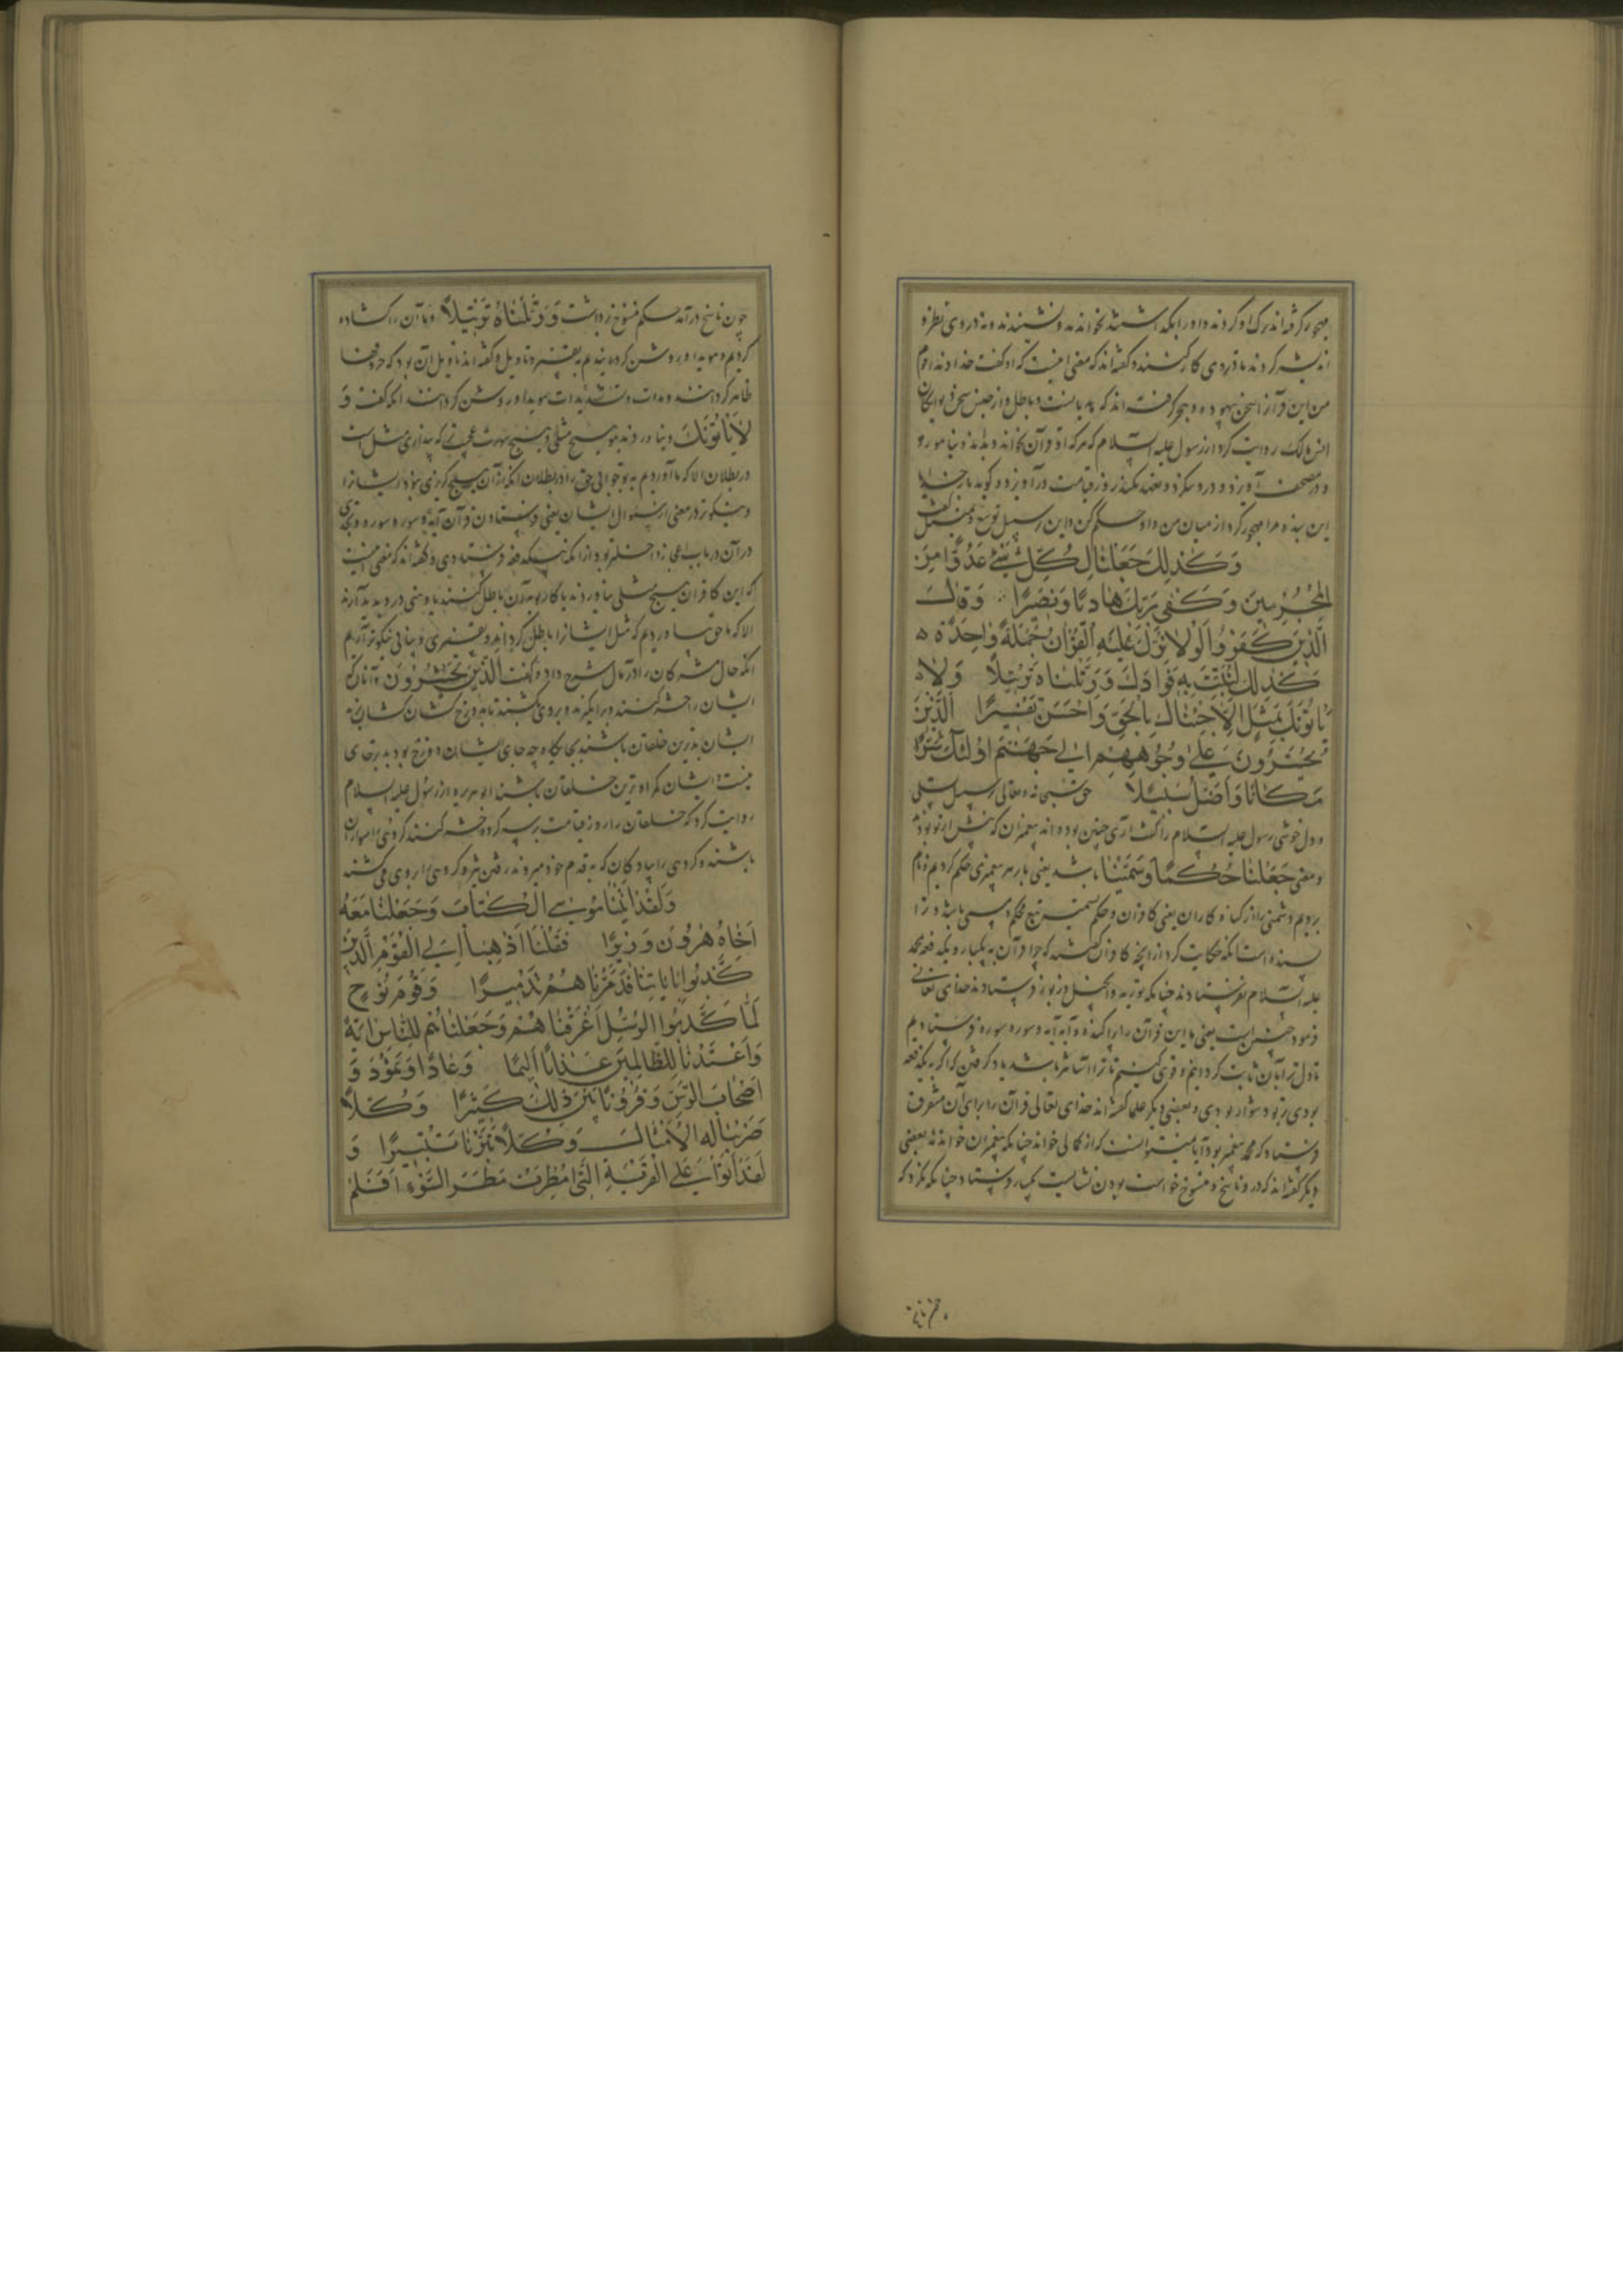 مهجور گرفته‌اند ترک او کردند و او را بگذاشتند نخواندند و نشنیدند و نه در وی نظر و
اندیشه کردند تا در وی کار کنند و گفته‌اند که معنی اینست که او گفت خداوندا قوم
من این قرآن را سخن بیهوده و هجر گرفته‌اند که و باطل و از جنس سخن
انس مالک روایت کرد از رسول علیه السلام که هر که او قرآن بخواند و بداند و بیاموزد و
و در مصحف آویزد و در و ننگرد و تعهد نکند روز قیامت درآویزد و گوید بار خدایا
این بنده مرا مهجور کرد از میان من و او حکم کن و این بر سبیل توسع و تمثیل گفت
وَكَذٰلِكَ جَعَلْنَا لِكُلِّ نَبِيٍّ عَدُوًّا مِنَ
الْمُجْرِمِينَ وَكَفٰى بِرَبِّكَ هَادِيًا وَنَصِيرًا وَقَالَ
الَّذِينَ كَفَرُوا لَوْلَا نُزِّلَ عَلَيْهِ الْقُرْآنُ جُمْلَةً وَاحِدَةً
كَذٰلِكَ لِنُثَبِّتَ بِهِ فُؤَادَكَ وَرَتَّلْنَاهُ تَرْتِيلًا وَلَا
يَأْتُونَكَ بِمَثَلٍ إِلَّا جِئْنَاكَ بِالْحَقِّ وَأَحْسَنَ تَفْسِيرًا الَّذِينَ
يُحْشَرُونَ عَلٰى وُجُوهِهِمْ إِلٰى جَهَنَّمَ أُولٰئِكَ شَرٌّ
مَكَانًا وَأَضَلُّ سَبِيلًا حق سبحانه و تعالی بر سبیل تسلی
و دل خوشی رسول علیه السلام را گفت آری چنین بوده‌اند پیغمبران که پیش از تو بودند
و معنی جَعَلْنَا حُكْمًا وَسَمَّيْنَا باشد یعنی ما بر هر پیغمبری حکم کردیم و نام
بردیم دشمنی را از گناه کاران یعنی کافران و حکم تسمیت تبع محکم و مسمی باشد و ترا
بسنده است آنگه حکایت کرد از آنچه کافران گفتند که چرا قرآن به یکبار و یک دفعه بمحمد
علیه السلام نفرستادند چنانکه توریه و انجیل و زبور فرستادند خدای تعالی
فرمود چنین است یعنی ما این قرآن را پراکنده و آیه آیه و سوره سوره فرستادیم
تا دل ترا بآن ثابت گردانیم و قوی کنیم تا ترا آسانتر باشد یاد گرفتن که اگر به یک دفعه
بودی بر تو دشوار بودی و بعضی دیگر علما گفته‌اند خدای تعالی قرآن را برای آن متفرق
فرستاد که محمد پیغمبر بود که از کتابی خواند چنانکه پیغمبران خواندند بعضی
دیگر گفته‌اند که در و ناسخ و منسوخ خواست بودن نشایست یکبار فرستاد چنانکه نگردد که
چون ناسخ
چون ناسخ درآمد حکم منسوخ برداشت وَرَتَّلْنَاهُ تَرْتِيلًا و ما آن را گشاده
کردیم و هویدا و روشن گردانیدیم به تفسیر و تاویل و گفته‌اند تاویل آن بود که حرفها
ظاهر گردانند و مدات و تشدیدات هویدا و روشن گردانند آنگه گفت وَ
لَا يَأْتُونَكَ و نیاورند به تو هیچ مثلی و هیچ شبهت عجب که پنداری مثل است
در بطلان الا که ما آوردیم به تو جوابی حق را در بطلان آنکه از آن هیچ گریزی نبود ایشانرا
و نیکوتر در معنی از سوال ایشان یعنی فرستادن قرآن آیه و سوره سوره
در آن در باب اعجاز داخلتر بود از آنکه به یک دفعه فرستادی و گفته‌اند که معنی اینست
که این کافران هیچ مثلی نیاورند تا کار تو بدان باطل کنند یا وهنی در و پدید آرند
الا که ما حق بیاوردیم که مثل ایشانرا باطل گرداند و تفسیری و بیانی نیکوتر آریم
آنگه حال مشرکان را در مآل شرح داد و گفت الَّذِينَ يُحْشَرُونَ آنانکه
ایشان را حشر کنند و برانگیزند و بر وی کشند تا به دوزخ کشان کشان
ایشان بدترین خلقان باشند بجایگاه چه جای ایشان دوزخ بود بد تر جای
نیست و ایشان گمراه ترین خلقان باشند ابو هریره از رسول علیه السلام
روایت کرد که خلقان را روز قیامت بر سه گروه حشر کنند گروهی سواران
باشند و گروهی را پیادگان که به قدم خود میروند رفتن و گروهی را بر وی می کشند
وَلَقَدْ آتَيْنَا مُوسَى الْكِتَابَ وَجَعَلْنَا مَعَهُ
أَخَاهُ هٰرُونَ وَزِيرًا فَقُلْنَا اذْهَبَا إِلَى الْقَوْمِ الَّذِينَ
كَذَّبُوا بِآيَاتِنَا فَدَمَّرْنَاهُمْ تَدْمِيرًا وَقَوْمَ نُوحٍ
لَمَّا كَذَّبُوا الرُّسُلَ أَغْرَقْنَاهُمْ وَجَعَلْنَاهُمْ لِلنَّاسِ آيَةً
وَأَعْتَدْنَا لِلظَّالِمِينَ عَذَابًا أَلِيمًا وَعَادًا وَثَمُودَ وَ
أَصْحَابَ الرَّسِّ وَقُرُونًا بَيْنَ ذٰلِكَ كَثِيرًا وَكُلًّا
ضَرَبْنَا لَهُ الْأَمْثَالَ وَكُلًّا تَبَّرْنَا تَتْبِيرًا وَ
لَقَدْ أَتَوْا عَلَى الْقَرْيَةِ الَّتِي أُمْطِرَتْ مَطَرَ السَّوْءِ أَفَلَمْ